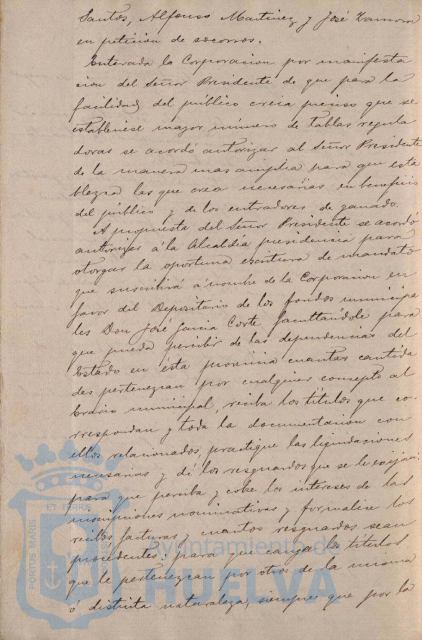 Santos, Alfonso Martinez y José Zamora
en peticion de socorros.
Enterada la Corporacion por manifesta
cion del Señor Presidente de que para la
facilidad del público creia preciso que se
estableciese mayor número de tablas regula
doras se acordó autorizar al Señor Presidente
de la manera mas amplia para que esta
blezca las que crea necesarias en beneficio
del público y de los entradores de ganado.
A propuesta del Señor Presidente se acordó
autorizar á la Alcaldia presidencia para
otorgar la oportuna escritura de mandato
que suscribirá a nombre de la Corporacion en
favor del Depositario de los fondos municipa
les Don José Garcia Corte facultandole para
que pueda percibir de las dependencias del
Estado en esta provincia cuantas cantida
des pertenezcan por cualquier concepto al
Erario municipal, reciba los títulos que co-
rrespondan y toda la documentacion con
ellos relacionados, practique las liquidaciones
necesarias y dé los resguardos que se le exijan:
para que perciba y cobre los intereses de las
inscripciones nominativas y formalice los
recibos, facturas y cuantos resguardos sean
procedentes: para que canjee los títulos
que le pertenezcan por otros de la misma
ó distinta naturaleza, siempre que por la
PORTUS MARIS
ET TERRE
Ayuntamiento de
HUELVA